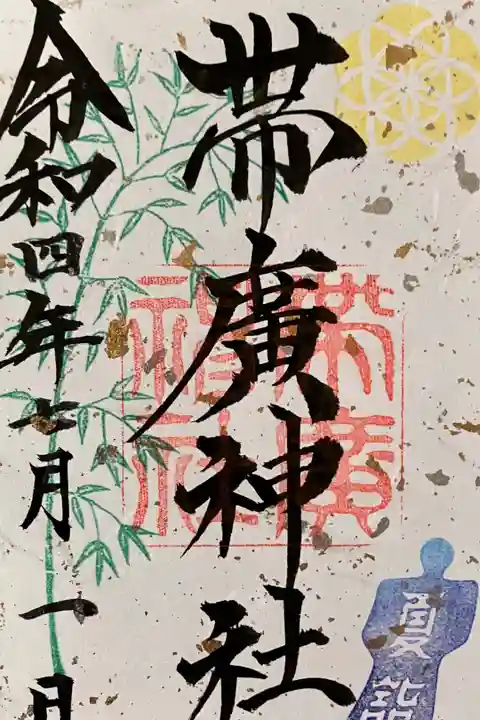 帯廣神社
令和四年七月一日
帯廣
神社
夏詣